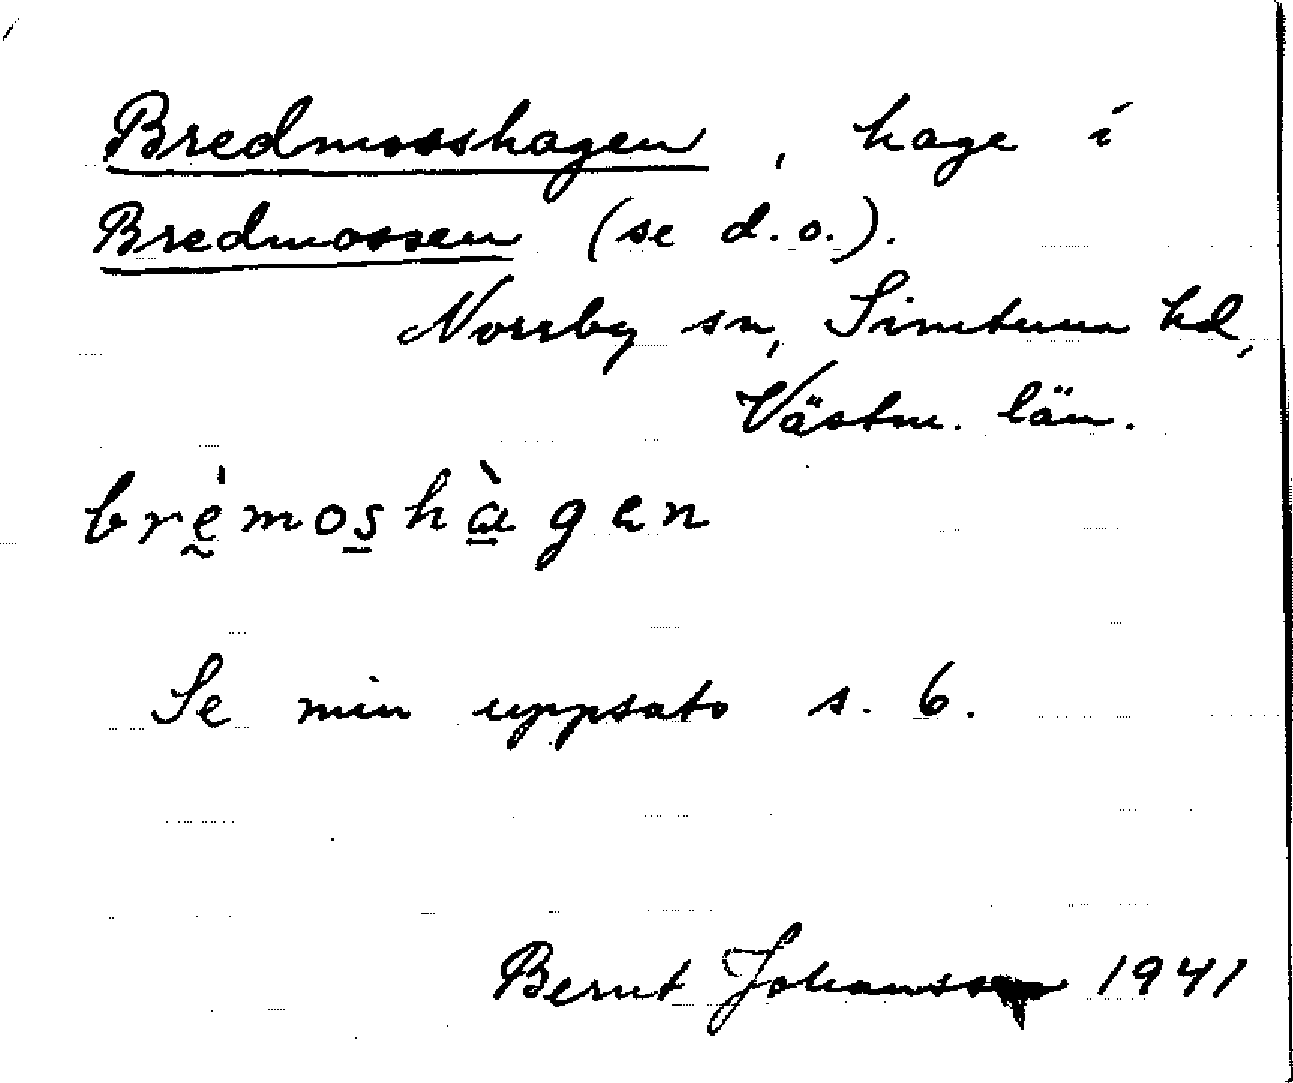 Bredmosshagen, hage i
Bredmossen (se d.o.).
Norrby sn, Simtuna hd,
Västm. län.
brèmoshàgen
Se min uppsats s. 6.
Bernt Johansson 1941